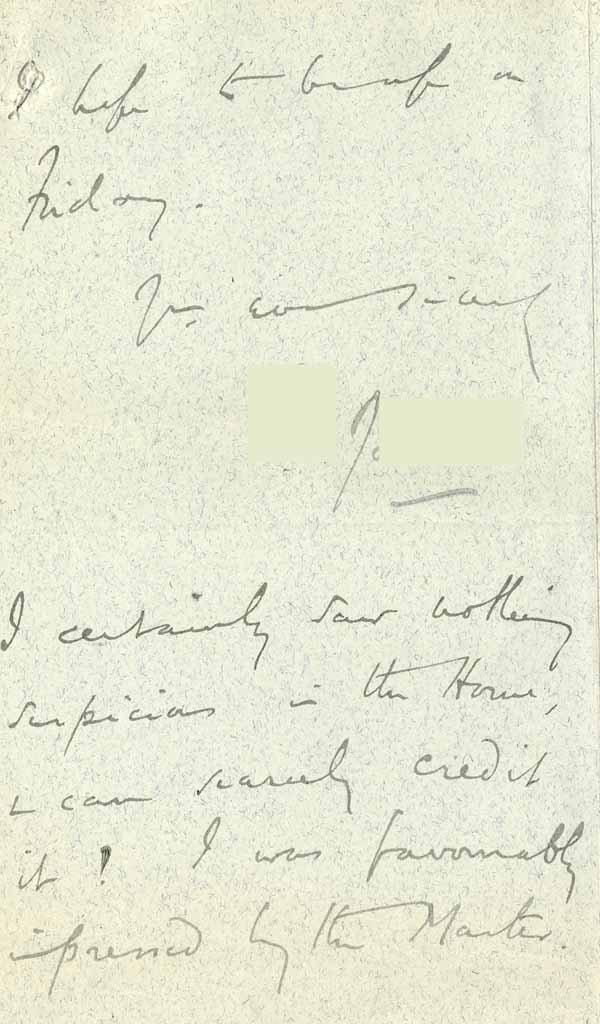 I hope to be up on
Friday.
Yrs ever sincerely
I certainly saw nothing
suspicious in the Home,
& can scarcely credit
it! I was favourably
impressed by the Master.